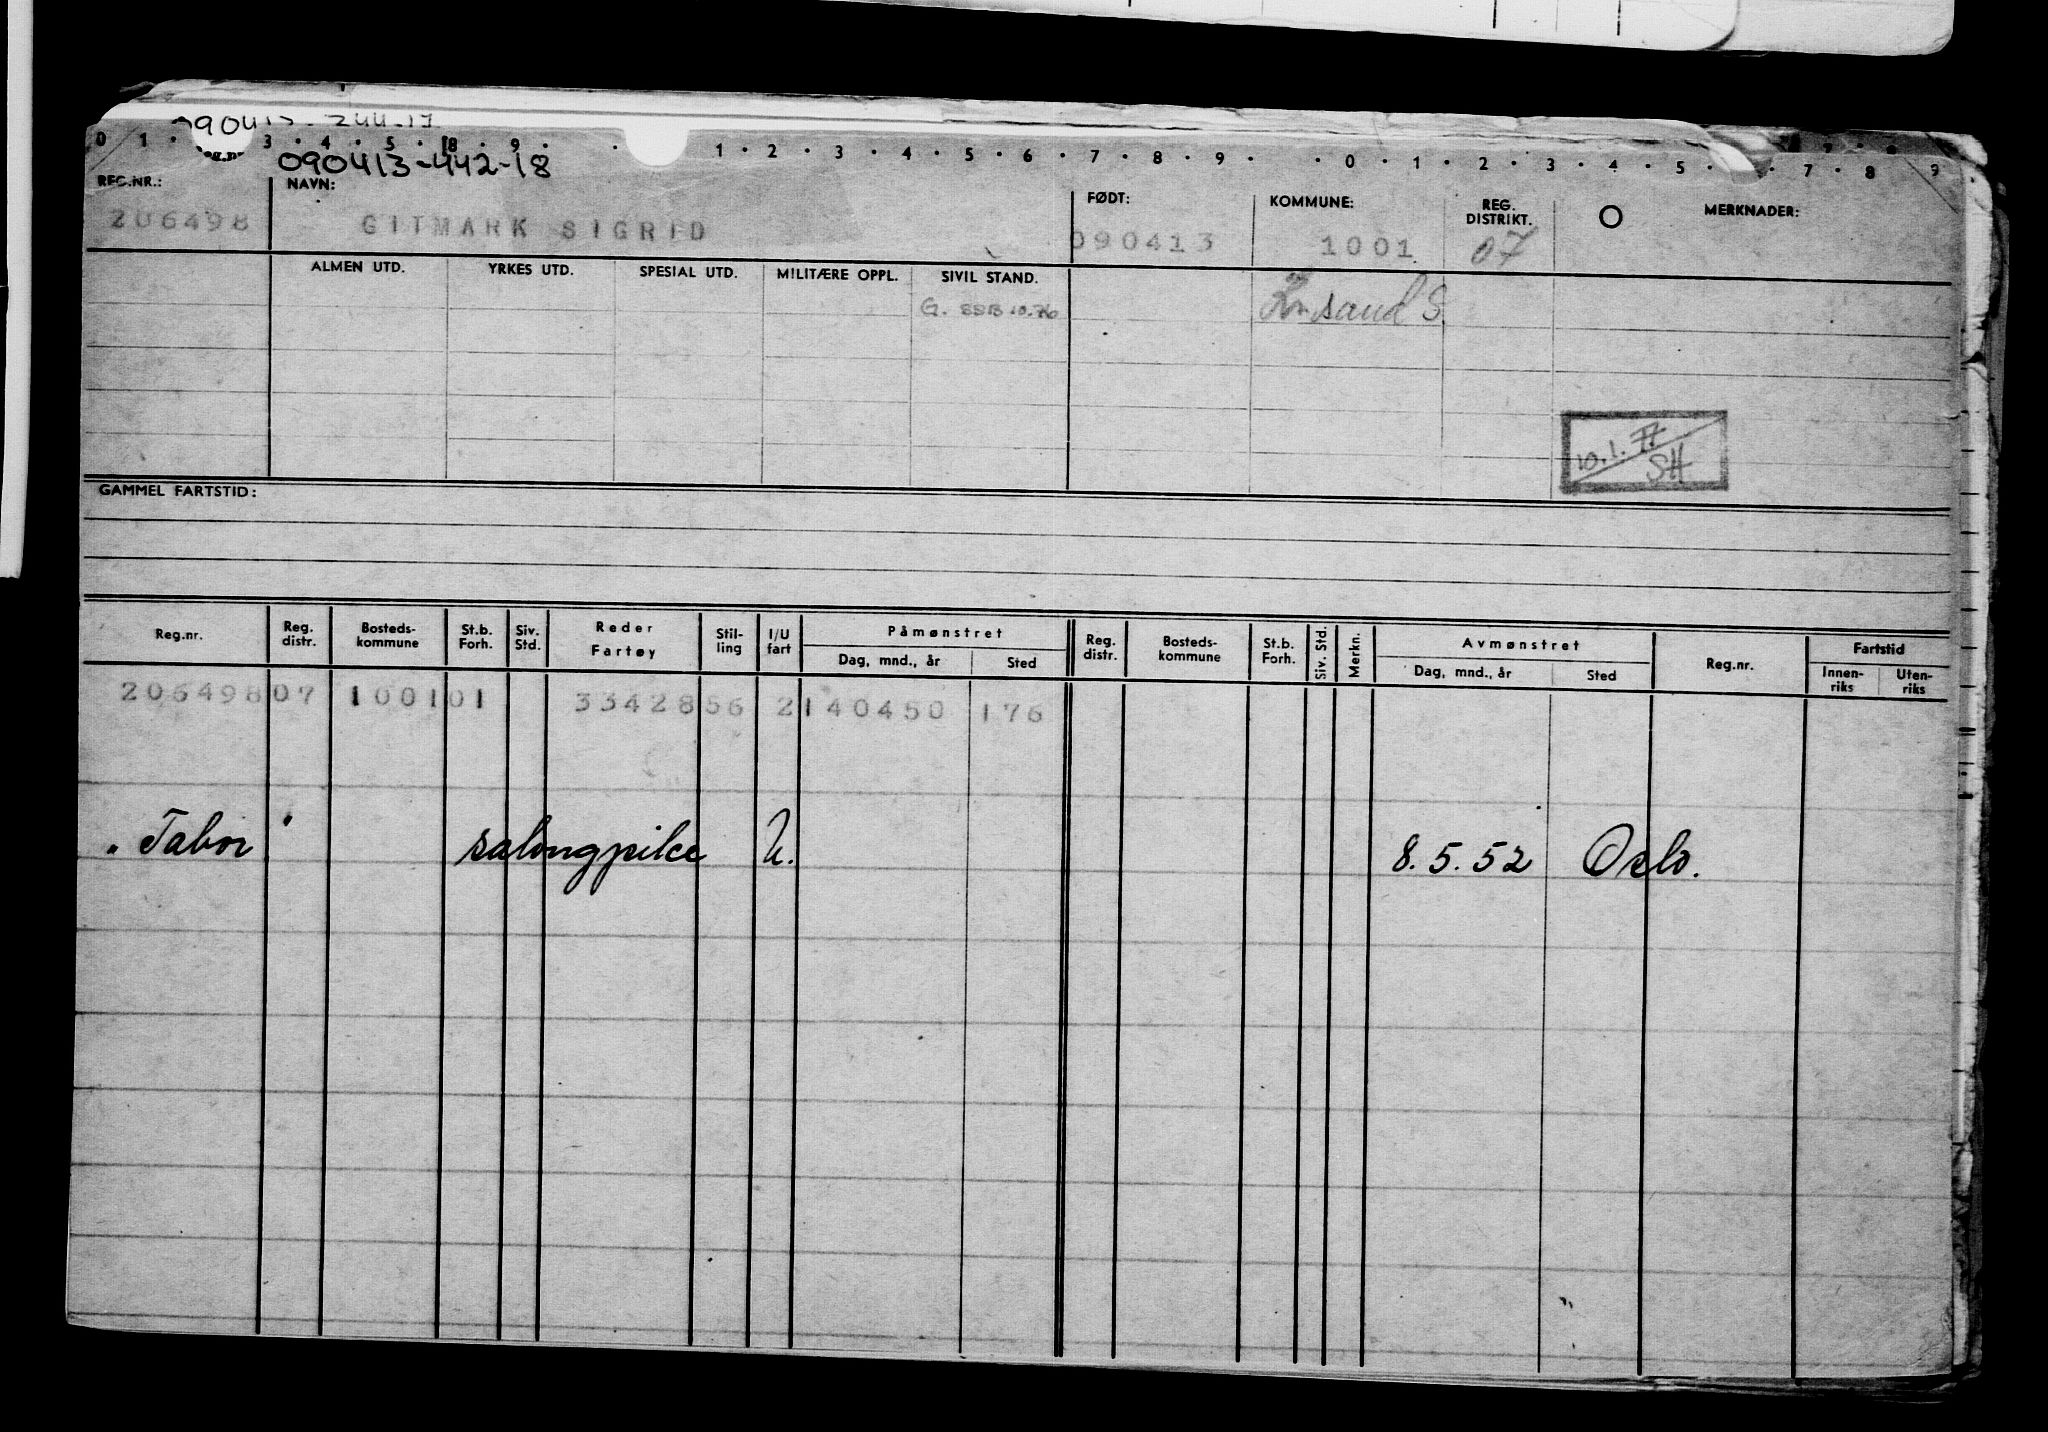 0 1 . 3 . 4 . 5 . 8 . 9 . . 1 . 2 . 3 . 4 . 5 . 6 . 7 . 8 . 9 . . 0 . 1 . 2 . 3 . 4 . 5 . 7 . 8 9
090413-442-18
REG.NR.: NAVN: FØDT: KOMMUNE: REG. DISTRIKT. O MERKNADER:
206498 GITMARK SIGRID 090413 1001 07
ALMEN UTD. YRKES UTD. SPESIAL UTD. MILITÆRE OPPL. SIVIL STAND.
G. SSB 10.76 Kr.sand S.
10.1.77 SH
GAMMEL FARTSTID:
Reg.nr. Reg. distr. Bosteds- kommune St.b. Forh. Siv. Std. Reder Fartøy Stil- ling I/U fart Påmønstret Reg. distr. Bosteds- kommune St.b. Forh. Siv. Std. Merkn. Avmønstret Reg.nr. Fartstid
Dag, mnd., år Sted Dag, mnd., år Sted Innen- riks Uten- riks
206498 07 1001 01 33428 56 2 140450 176
"Tabor" salongpike U. 8.5.52 Oslo.